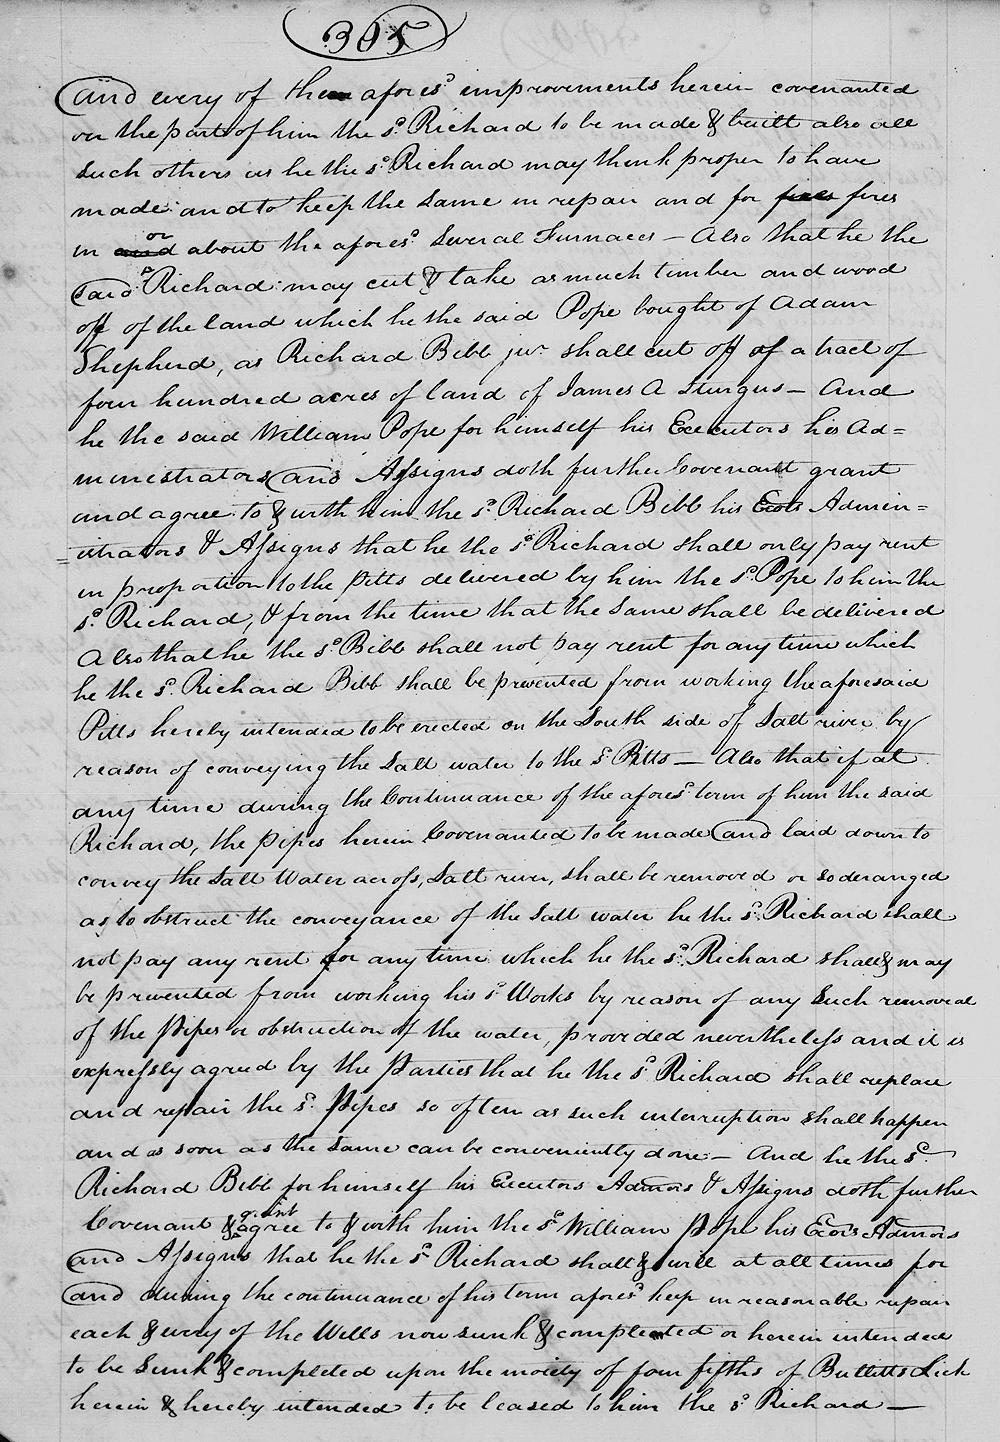 305
and every of the afores.d improvements herein covenanted
on the part of him the s.d Richard to be made & built also all
such others as he the s.d Richard may think proper to have
made: and to keep the same in repair and for fires fires
in and or about the afores.d several Furnaces — Also that he the
said Richard may cut & take as much timber and wood
off of the land which he the said Pope bought of Adam
Shepherd, as Richard Bibb jur shall cut off of a tract of
four hundred acres of land of James A Sturgus — And
he the said William Pope for himself his Executors his Ad=
ministrators and Assigns doth further Covenant grant
and agree to & with him the s.d Richard Bibb his Exors Admin=
=istrators & Assigns that he the s.d Richard shall only pay rent
in proportion to the Pitts delivered by him the s.d Pope to him the
s.d Richard, & from the time that the same shall be delivered
Also that he the s.d Bibb shall not pay rent for any time which
he the s.d Richard Bibb shall be prevented from working the aforesaid
Pitts hereby intended to be erected on the South side of Salt river by
reason of conveying the Salt water to the s.d Pitts — Also that if at
any time during the Continuance of the afores.d term of him the said
Richard, the pipes herein Covenanted to be made and laid down to
convey the Salt Water across, Salt river, shall be removed or so deranged
as to obstruct the conveyance of the Salt water he the s.d Richard shall
not pay any rent for any time which he the s.d Richard shall & may
be prevented from working his s.d Works by reason of any such removal
of the Pipes or obstruction of the water, provided nevertheless and it is
expressly agreed by the Parties that he the s.d Richard shall replace
and repair the s.d Pipes so often as such interruption shall happen
and as soon as the same can be conveniently done — And he the s.d
Richard Bibb for himself his Executors Admors & Assigns doth further
Covenant & grant agree to & with him the s.d William Pope his Exors Admors
and Assigns that he the s.d Richard shall & will at all times for
and during the continuance of his term afores.d keep in reasonable repair
each & every of the Wells now sunk & completed or herein intended
to be Sunk & completed upon the moiety of four fifths of Bullitts Lick
herein & hereby intended to be leased to him the s.d Richard —